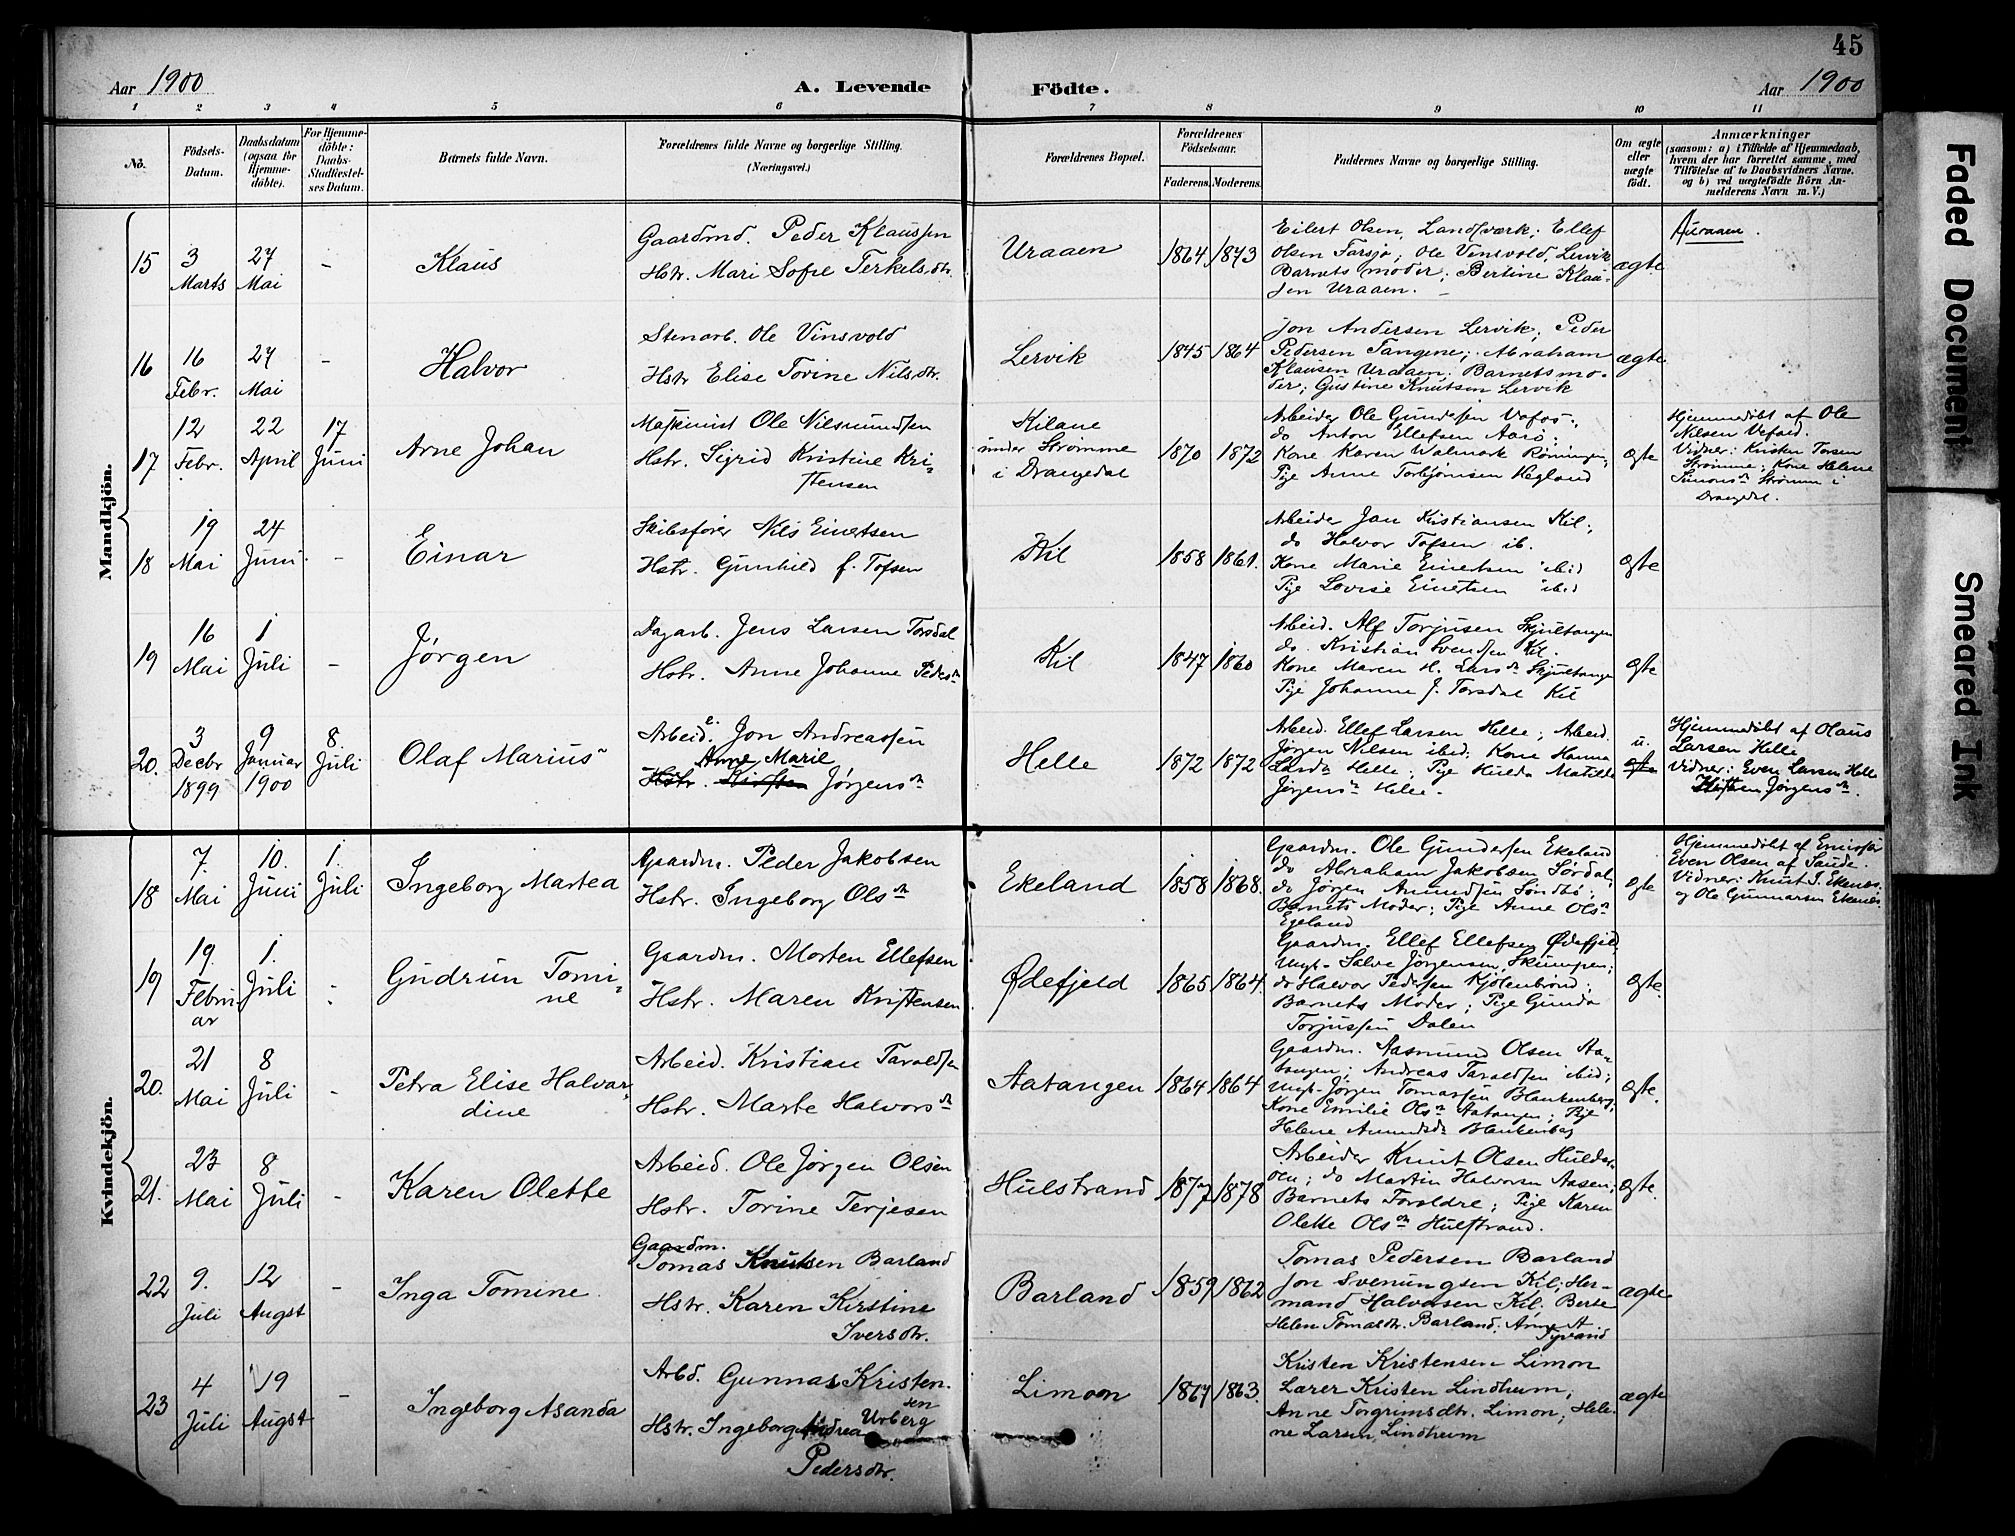 45
Aar 1900
A. Levende
Födte.
Aar 1900
1 2 3 4 5 6 7 8 9 10 11
No.
Födsels-
Datum.
Daabsdatum
(ogsaa for
Hjemme-
döbte).
For Hjemme-
döbte:
Daabs-
Stadfæstel-
ses Datum.
Barnets fulde Navn.
Forældrenes fulde Navne og borgerlige Stilling.
(Næringsvei.)
Forældrenes Bopæl.
Forældrenes
Födselsaar.
Faderens. Moderens.
Faddernes Navne og borgerlige Stilling.
Om ægte
eller
uægte
födt.
Anmærkninger
(saasom: a) i Tilfælde af Hjemmedaab,
hvem der har forrettet samme, med
Tilföielse af to Daabsvidners Navne.
og b) ved uægtefödte Börn An-
melderens Navn m. V.)
Mandkjön.
15
3
Marts
27
Mai
-
Klaus
Gaardmd. Peder Klaussen
Hstr. Mari Sofie Terkelsdtr.
Uraaen
1864 1873
Eilert Olsen, Landsværk; Ellef
Olsen Farsjø; Ole Vinsvold, Lervik
Barnets moder; Bertine Klau-
sen Uraaen.
ægte
Auraaen.
16
16
Febr.
27
Mai
-
Halvor
Stenarb. Ole Vinsvold
Hstr Elise Torine Nilsdtr.
Lervik
1845 1864
Jon Andersen Lervik; Peder
Pedersen Tangene; Abraham
Klausen Uraaen. Barnets mo-
der; Gustine Knutsen Lervik
ægte
17
12
Febr.
22
April
17
Juni
Arne Johan
Maskinist Ole Nilsmundsen
Hstr. Sigrid Kristine Kri-
stensen
Kilane
under Strømme
i Drangedal
1870 1872
Arbeider Ole Gundersen Vafos;
do Anton Ellefsen Aarø;
Kone Karen Walmark Rønningen;
Pige Anne Torbjørnsen Hegland
ægte
Hjemmedøbt af Ole
Nilsen Vefald.
Vidner: Kristen Torsen
Strømme; Kone Helene
Simonsdr Strømm i
Drangedal.
18
19
Mai
24
Juni
-
Einar
Skibsfører Nils Einertsen
Hstr. Gunhild f. Tofsen
Kil
1858 1861.
Arbeider Jan Kristiansen Kil;
do Halvor Tofsen ib.
Kone Marie Einertsen ibid
Pige Lovise Einertsen ibid
ægte
19
16
Mai
1
Juli
-
Jørgen
Dagarb. Jens Larsen Torsdal
Hstr. Anne Johanne Pedersdr
Kil
1847 1860
Arbeid. Alf Torjusen Skjultangen
do. Kristian Svendsen Kil.
Kone Maren H. Larsdr Skjultangen
Pige Johanne J. Torsdal Kil
ægte
20.
3
Decbr
1899
9
Januar
1900
8
Juli
Olaf Marius
Arbeid. Jon Andreassen
Anne Marie
Hstr. Kirsten Jørgensdr
Helle
1872 1872
Arbeid. Ellef Larsen Helle; Arbeid.
Jørgen Nilsen ibid; Kone Hanna
Larsdr Helle; Pige Hulda Matilde
Jørgensdr Helle.
u.
ægte
Hjemmedøbt af Olaus
Larsen Helle
Vidner: Even Larsen Helle
Kirsten Jørgensdr.
Kvindekjön.
18
7.
Mai
10.
Juni
1.
Juli
Ingeborg Martea
Gaardm. Peder Jakobsen
Hstr. Ingeborg Olsdr
Ekeland
1858 1868.
Gaardm. Ole Gundersen Ekeland
do Abraham Jakobsen Sørdal;
do Jørgen Amundsen Søndbø;
Barnets Moder; Pige Anne Olsdr
Egeland
ægte
Hjemmedøbt af
Even Olsen af Sande.
Vidner: Knut J. Ekenes.
og Ole Gunnarsen Ekenes.
19
19.
Februar
1.
Juli
-
Gudrun Tomi-
ne
Gaardm. Morten Ellefsen
Hstr. Maren Kristensen
Ødefjeld
1865 1864.
Gaardm. Ellef Ellefsen Ødefjeld
Ungk. Salve Jørgensen Skumpen;
do Halvor Pedersen Kjølenbrønd;
Barnets Moder; Pige Gunda
Torjussen Dalen
ægte.
20.
21
Mai
8
Juli
-
Petra Elise Halvar-
dine
Arbeid. Kristian Taraldsen
Hstr. Marte Halvorsdr
Aatangen
1864 1864
Gaardm. Rasmund Olsen Aa-
tangen; Andreas Taraldsen ibid;
Ungk. Jørgen Tomassen Blankenberg;
Kone Emilie Olsdr Aatangen; Pige
Helene Amundsdr Blankenberg
ægte.
21.
23
Mai
8
Juli
-
Karen Olette
Arbeid. Ole Jørgen Olsen
Hstr. Torine Terjesen
Hulstrand
1877 1878
Arbeider Knut Olsen Hulder-
øen; do Martin Halvorsen Aasen;
Barnets Foraldre; Pige Karen
Olette Olsdr Hulstrand.
ægte.
22
9.
Juli
12
Augst
-
Inga Tomine
Gaardm.
Tomas Knutsen Barland
Hstr. Karen Kirstine
Iversdtr.
Barland
1859 1862
Tomas Pedersen Barland
Jon Svenungsen Kil; Her-
mand Halvorsen Kil; Berte
Helen Tomasdtr. Barland; Anne A
Tyvand
ægte
23
4
Juli
19
Augst
-
Ingeborg Asanda
Arbd. Gunnar Kristen-
sen
Urberg
Hstr. Ingeborg Andrea
Pedersdtr.
Limoen
1867 1863.
Kristen Kristensen Limon
Lærer Kristen Lindheim;
Anne Torgrimsdtr. Limon; Hele-
ne Larsen, Lindheim
ægte
Faded Document
Smeared Ink